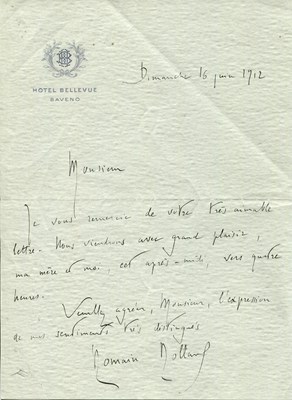 HB
HOTEL BELLEVUE
BAVENO
Dimanche 16 juin 1912
Monsieur
Je vous remercie de votre très aimable
lettre. Nous viendrons avec grand plaisir,
ma mère et moi cet après-midi, vers quatre
heures.
Veuillez agréer, Monsieur, l'expression
de mes sentiments très distingués
Romain Rolland